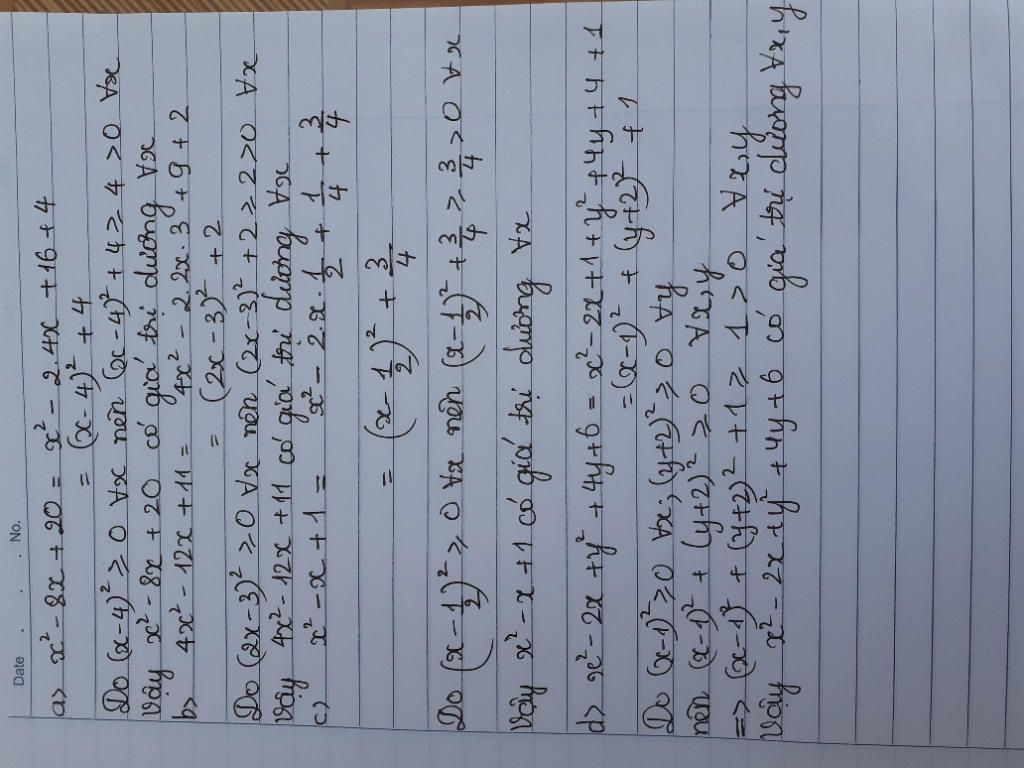 Date . . . No.
a> x² - 8x + 20 = x² - 2.4x + 16 + 4
= (x - 4)² + 4
Do (x-4)² ≥ 0 ∀x nên (x-4)² + 4 ≥ 4 > 0 ∀x
Vậy x² - 8x + 20 có giá trị dương ∀x
b> 4x² - 12x + 11 = 4x² - 2.2x.3 + 9 + 2
= (2x - 3)² + 2
Do (2x-3)² ≥ 0 ∀x nên (2x-3)² + 2 ≥ 2 > 0 ∀x
Vậy 4x² - 12x + 11 có giá trị dương ∀x
c> x² - x + 1 = x² - 2.x.1/2 + 1/4 + 3/4
= (x - 1/2)² + 3/4
Do (x - 1/2)² ≥ 0 ∀x nên (x - 1/2)² + 3/4 ≥ 3/4 > 0 ∀x
Vậy x² - x + 1 có giá trị dương ∀x
d> x² - 2x + y² + 4y + 6 = x² - 2x + 1 + y² + 4y + 4 + 1
= (x-1)² + (y+2)² + 1
Do (x-1)² ≥ 0 ∀x; (y+2)² ≥ 0 ∀y
nên (x-1)² + (y+2)² ≥ 0 ∀x,y
=> (x-1)² + (y+2)² + 1 ≥ 1 > 0 ∀x,y
Vậy x² - 2x + y² + 4y + 6 có giá trị dương ∀x,y